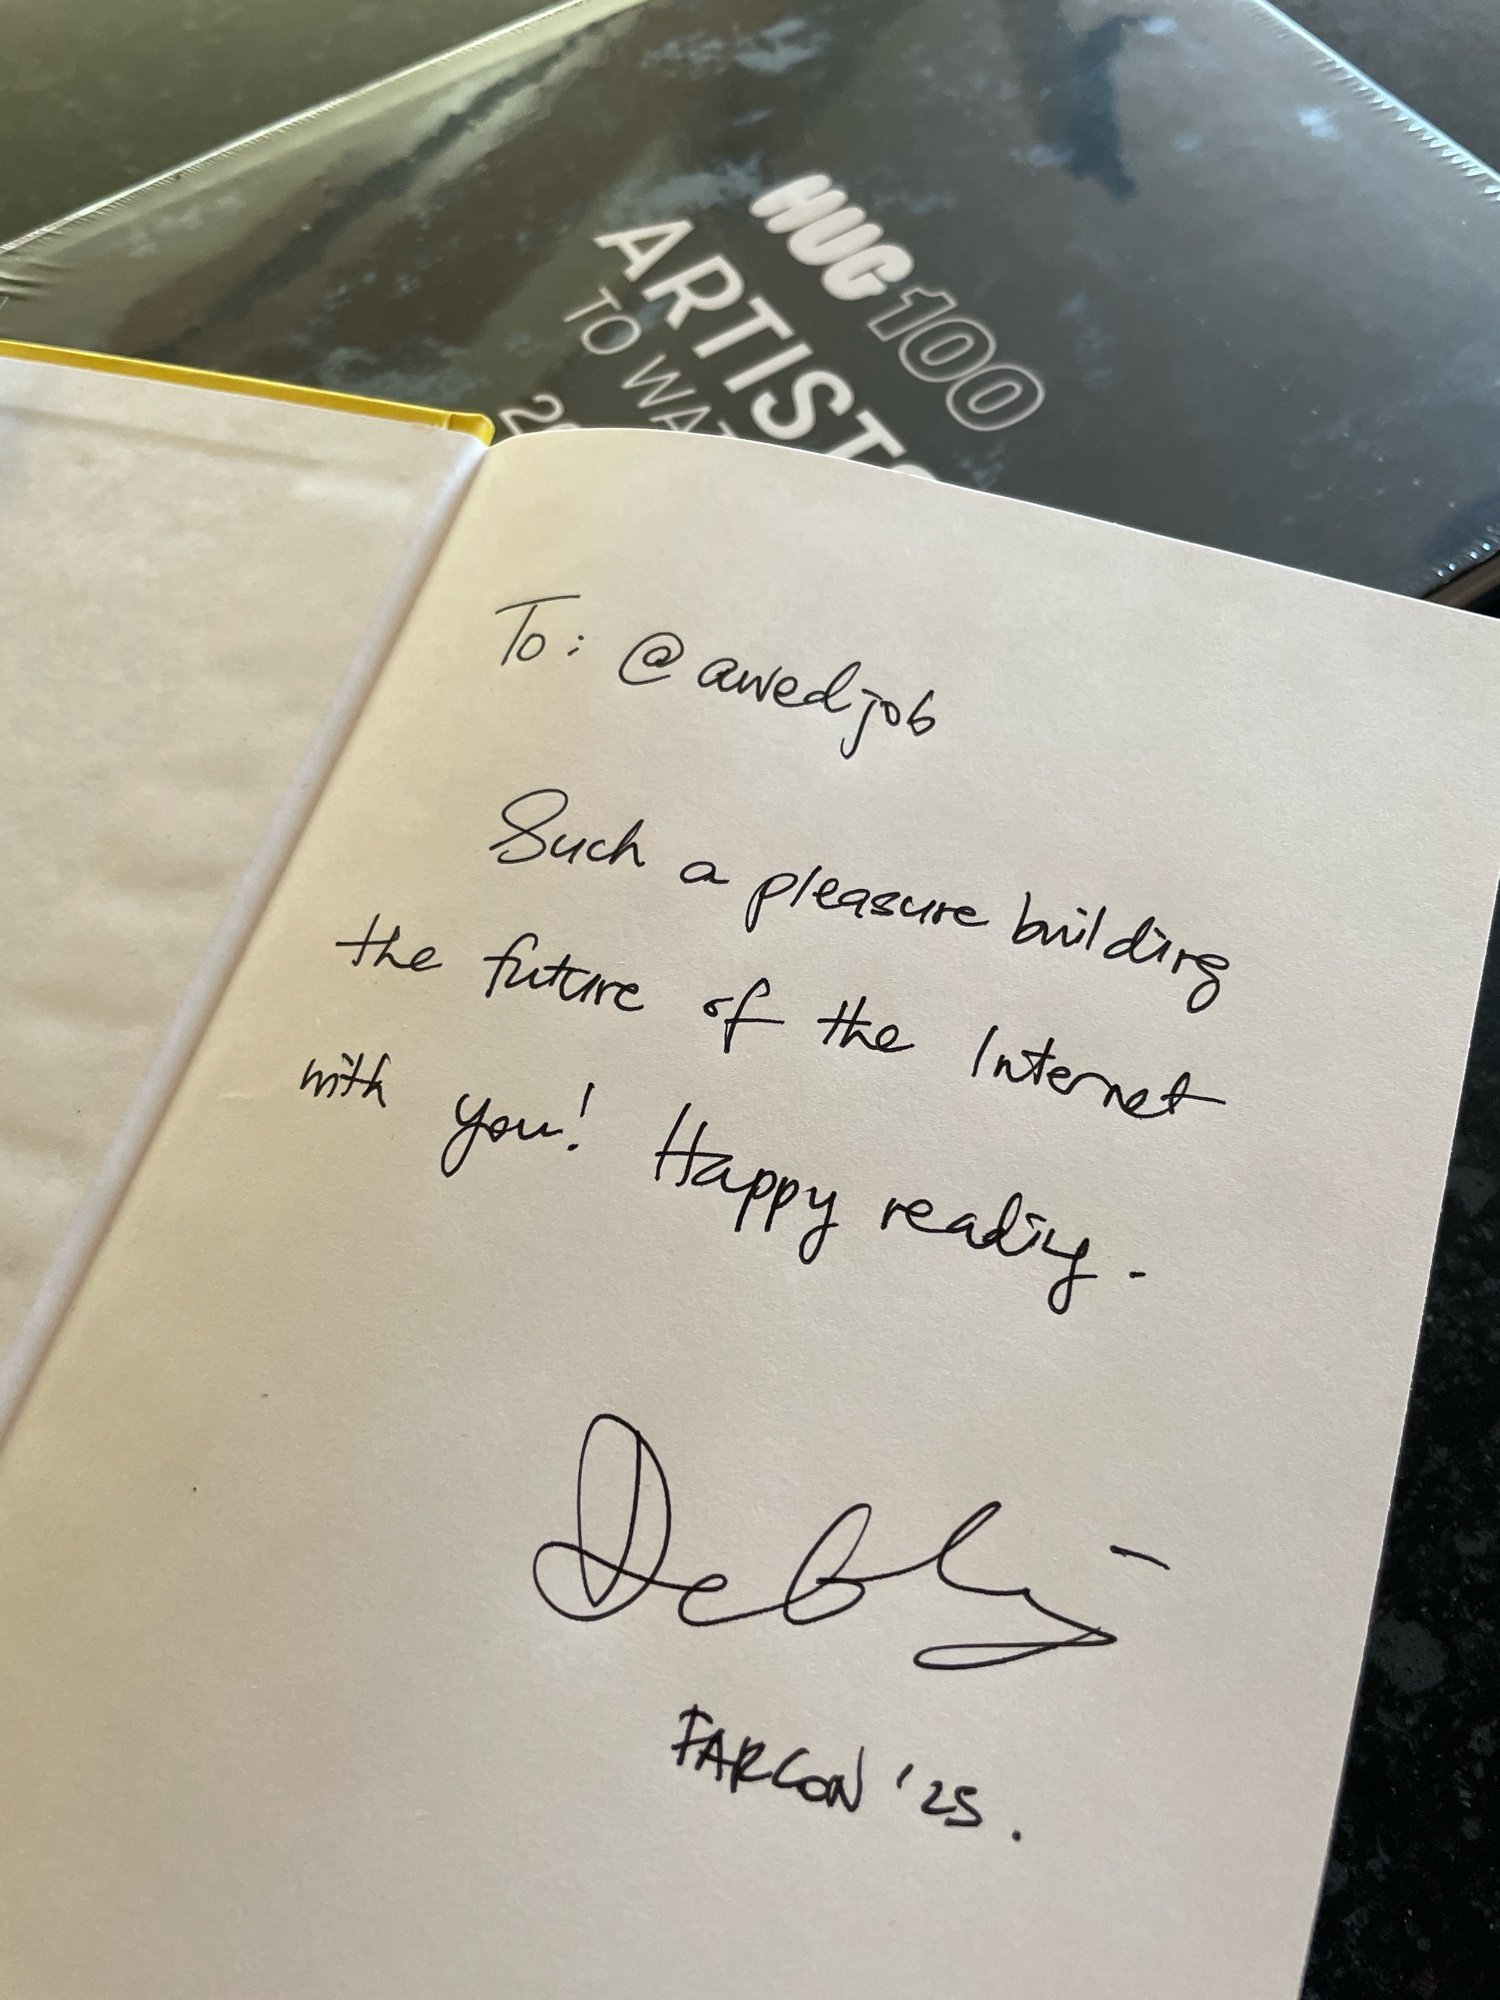 HUG 100
ARTISTS
TO WAT
20
To: @awedjob
Such a pleasure building
the future of the Internet
with you! Happy reading.
Debbie
FARCON '25.